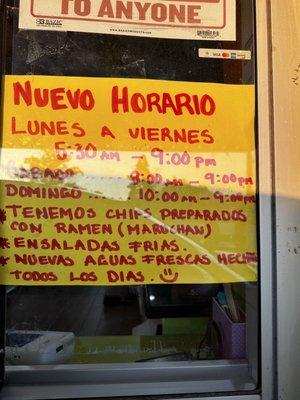 TO ANYONE
BAZIC
NUEVO HORARIO
LUNES A VIERNES
5:30 AM - 9:00 PM
SABADO ........ 8:00 AM - 9:00 PM
DOMINGO ..... 10:00 AM - 9:00 PM
* TENEMOS CHIPS PREPARADOS
CON RAMEN (MARUCHAN)
* ENSALADAS FRIAS.
* NUEVAS AGUAS FRESCAS HECH
TODOS LOS DIAS.